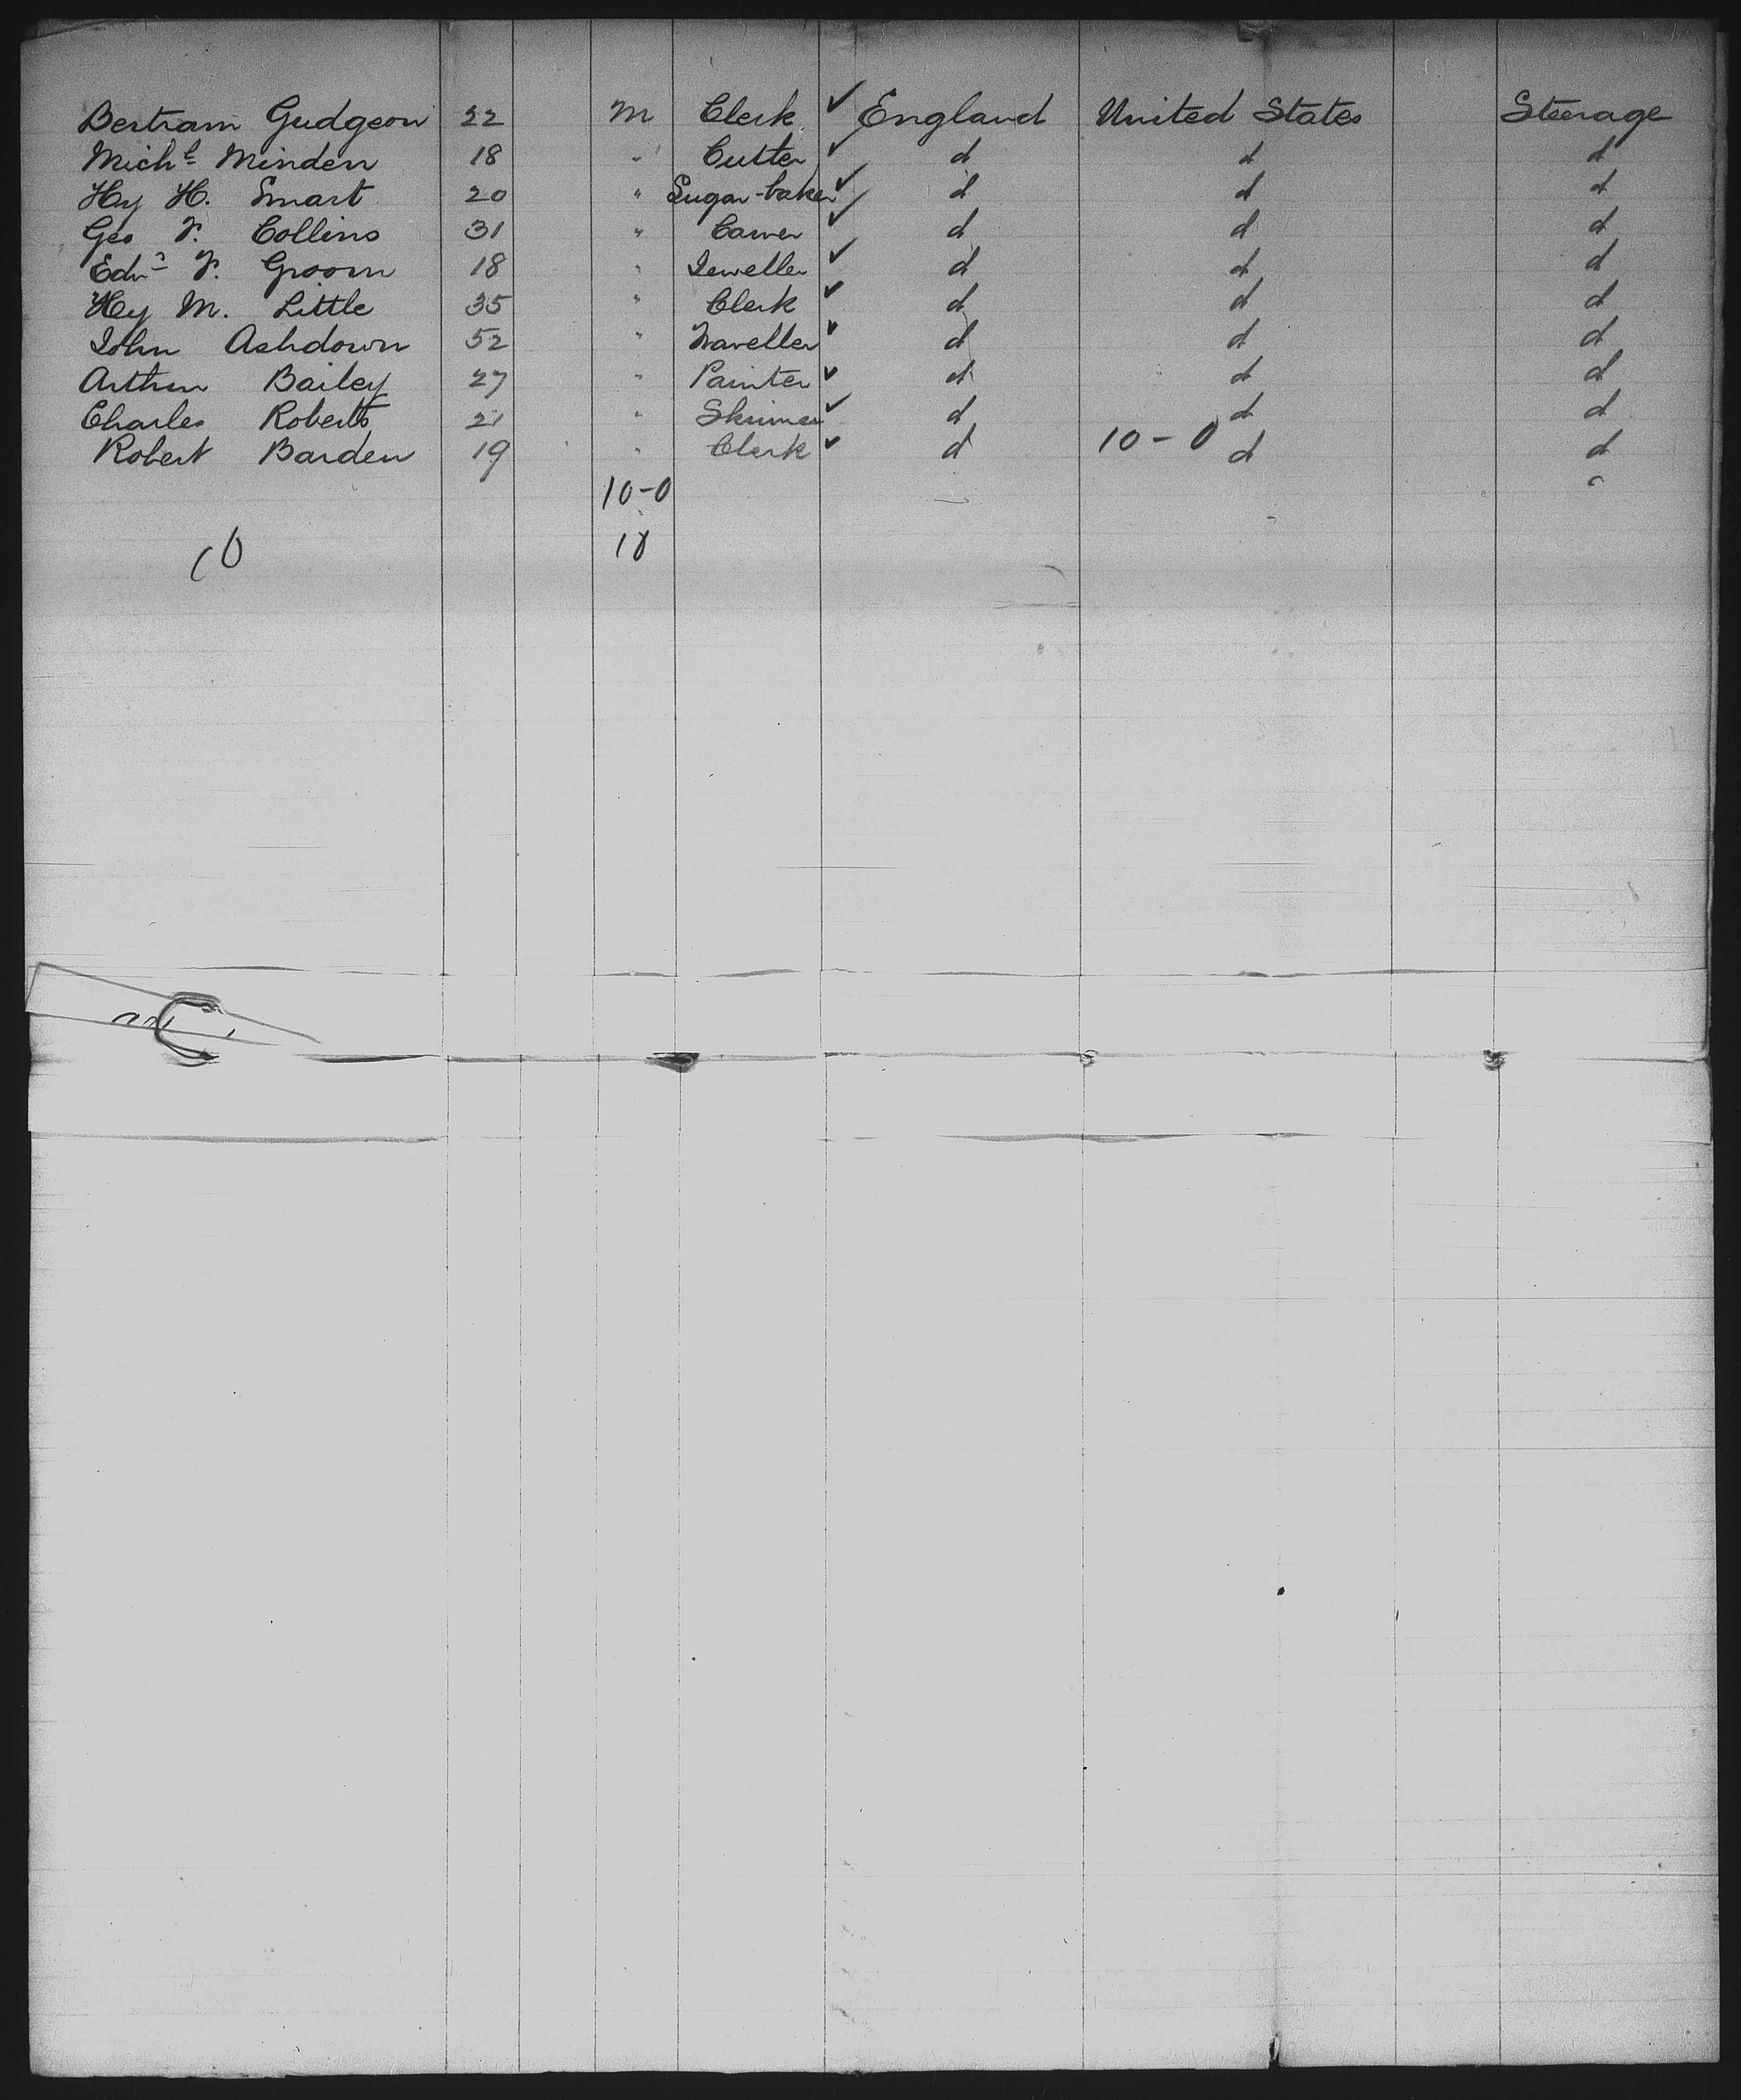 Bertram Gudgeon 22 M Clerk ✓ England United States Steerage
Mich^l Minden 18 " Cutter ✓ d d d
Hy H. Smart 20 " Sugar-baker ✓ d d d
Geo F. Collins 31 " Carver ✓ d d d
Edw^d F. Groom 18 " Jeweller ✓ d d d
Hy M. Little 35 " Clerk ✓ d d d
John Ashdown 52 " Traveller ✓ d d d
Arthur Bailey 27 " Painter ✓ d d d
Charles Roberts 21 " Skinner ✓ d d d
Robert Barden 19 " Clerk ✓ d 10-0 d d
10-0
10